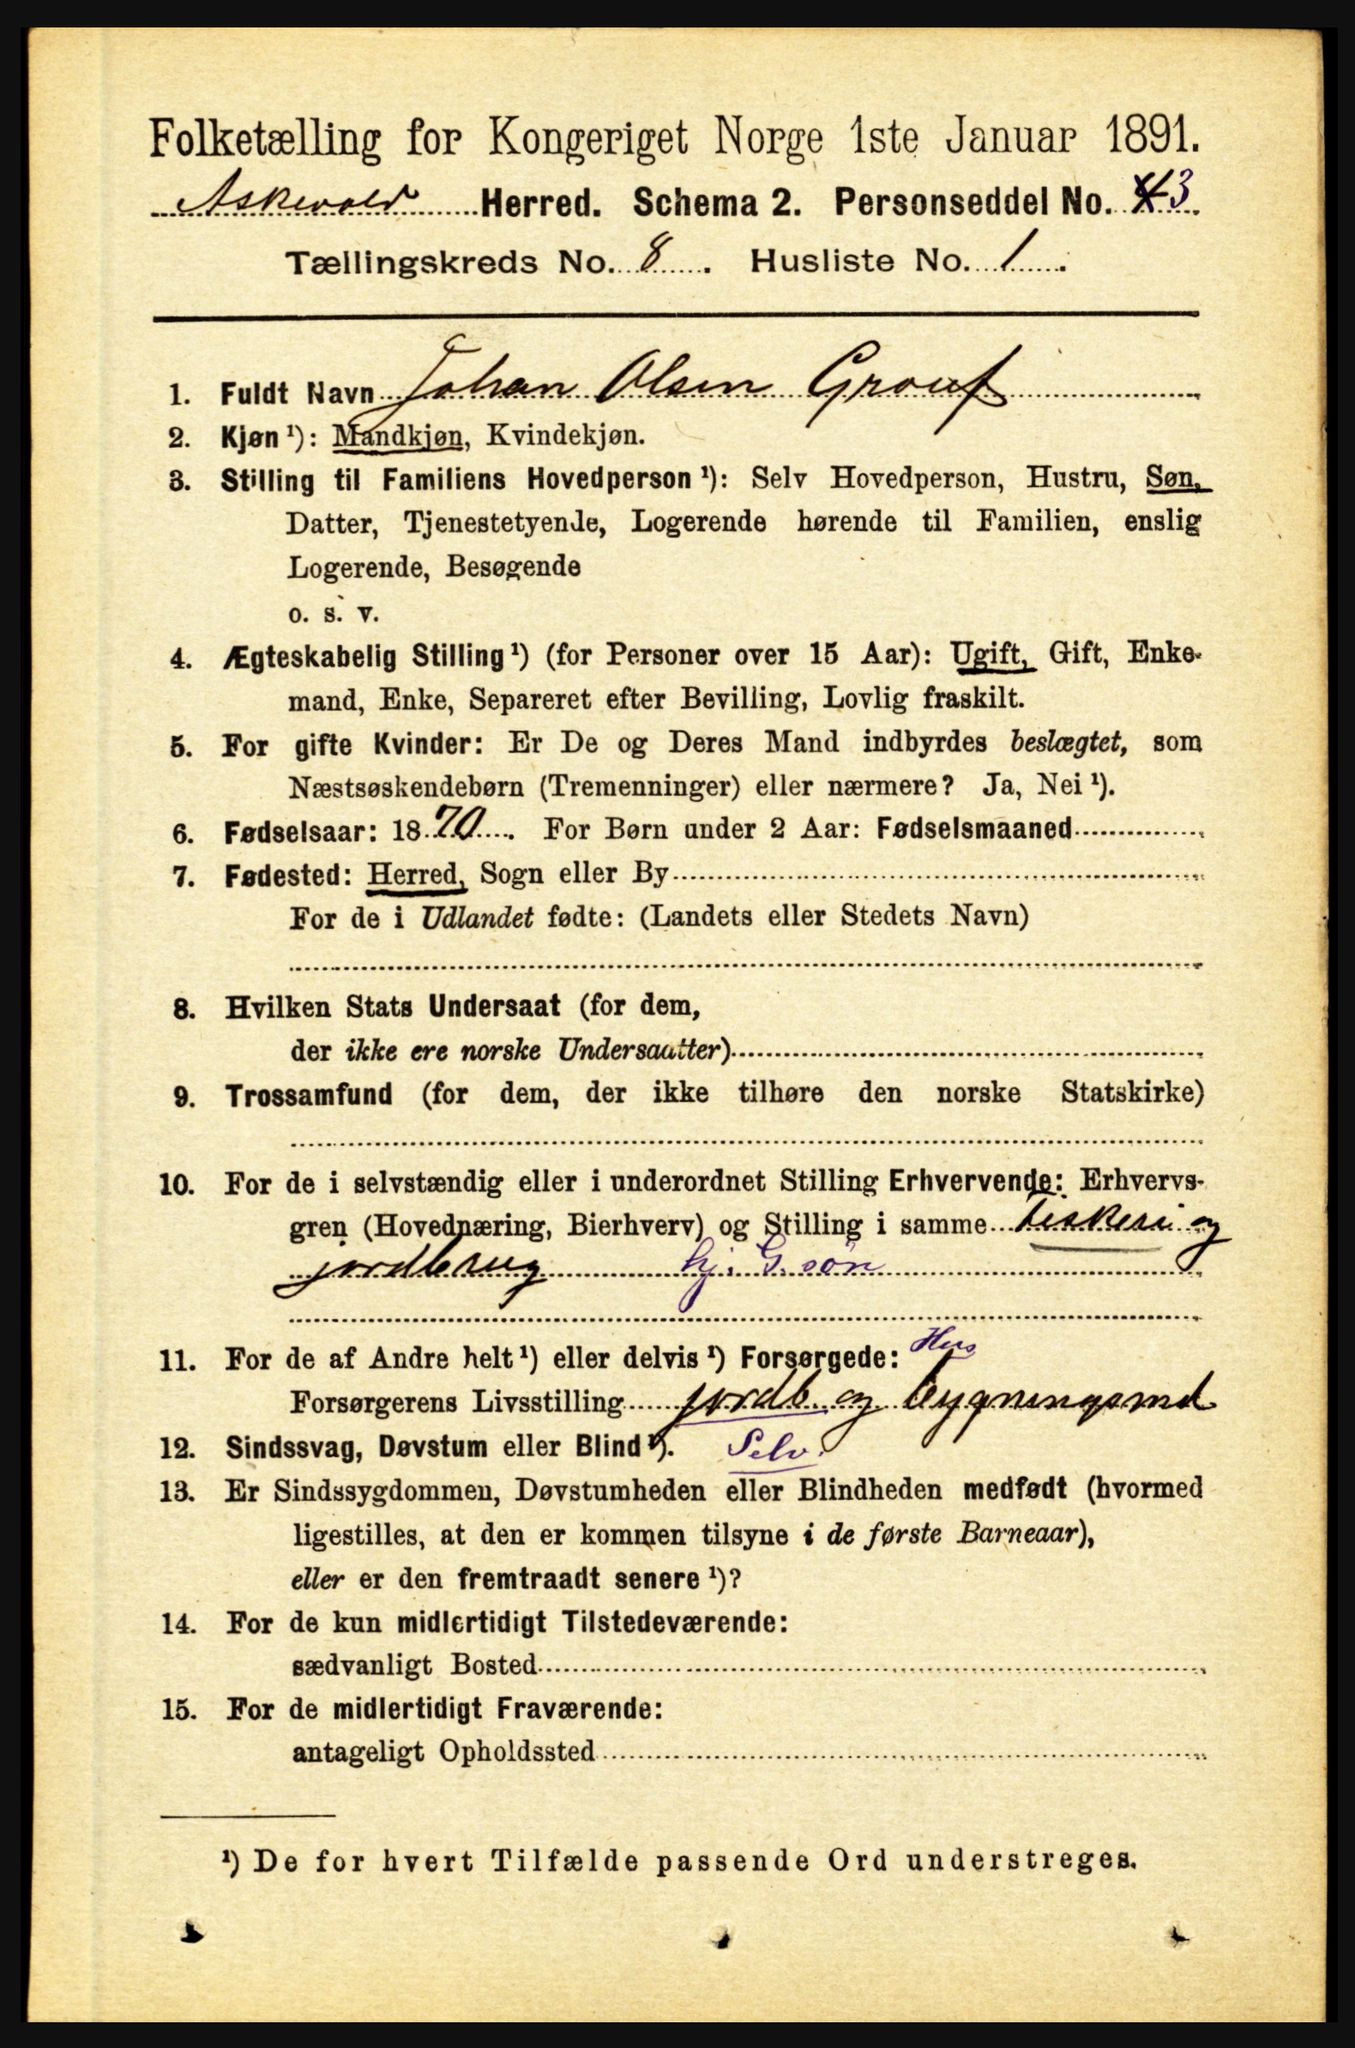 Folketælling for Kongeriget Norge 1ste Januar 1891.
Askevold Herred. Schema 2. Personseddel No. 3
Tællingskreds No. 8. Husliste No. 1.
1. Fuldt Navn Johan Olsen
2. Kjøn ¹): Mandkjøn, Kvindekjøn.
3. Stilling til Familiens Hovedperson ¹): Selv Hovedperson, Hustru, Søn,
Datter, Tjenestetyende, Logerende hørende til Familien, enslig
Logerende, Besøgende
o. s. v.
4. Ægteskabelig Stilling ¹) (for Personer over 15 Aar): Ugift, Gift, Enke-
mand, Enke, Separeret efter Bevilling, Lovlig fraskilt.
5. For gifte Kvinder: Er De og Deres Mand indbyrdes beslægtet, som
Næstsøskendebørn (Tremenninger) eller nærmere? Ja, Nei ¹).
6. Fødselsaar: 1870. For Børn under 2 Aar: Fødselsmaaned
7. Fødested: Herred, Sogn eller By
For de i Udlandet fødte: (Landets eller Stedets Navn)
8. Hvilken Stats Undersaat (for dem,
der ikke ere norske Undersaatter)
9. Trossamfund (for dem, der ikke tilhøre den norske Statskirke)
10. For de i selvstændig eller i underordnet Stilling Erhvervende: Erhvervs-
gren (Hovednæring, Bierhverv) og Stilling i samme fiskeri og
jordbrug hj. G. søn
11. For de af Andre helt ¹) eller delvis ¹) Forsørgede: Hus
Forsørgerens Livsstilling jordb og bygningsmd
12. Sindssvag, Døvstum eller Blind ¹). Selv.
13. Er Sindssygdommen, Døvstumheden eller Blindheden medfødt (hvormed
ligestilles, at den er kommen tilsyne i de første Barneaar),
eller er den fremtraadt senere ¹)?
14. For de kun midlertidigt Tilstedeværende:
sædvanligt Bosted
15. For de midlertidigt Fraværende:
antageligt Opholdssted
¹) De for hvert Tilfælde passende Ord understreges.